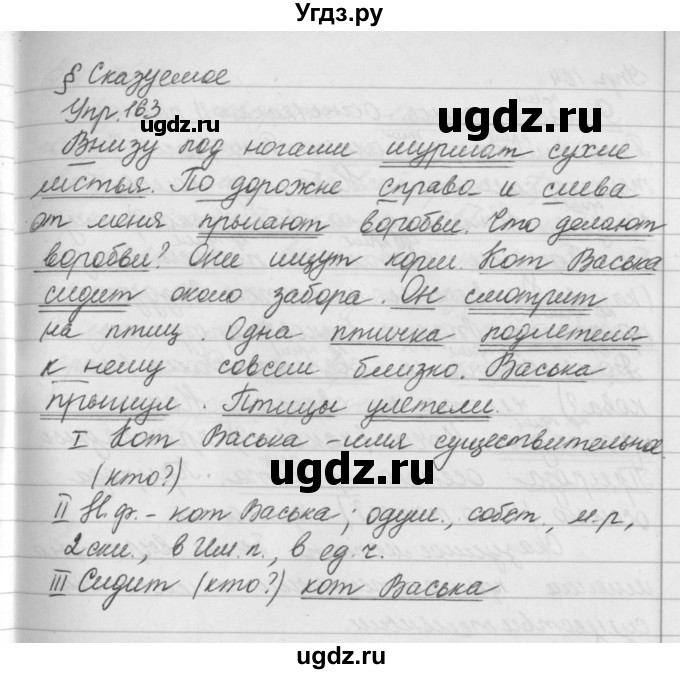 Угдз.ру
§ Сказуемое
Упр.163
Внизу под ногами шуршат сухие
листья. По дорожке справа и слева
от меня прыгают воробьи. Что делают
воробьи? Они ищут корм. Кот Васька
сидит около забора. Он смотрит
на птиц. Одна птичка подлетела
к нему совсем близко. Васька
прыгнул. Птицы улетели.
I Кот Васька - имя существительное.
(кто?)
II Н.ф. - кот Васька; одуш., собст., м.р.,
2 скл., в Им.п., в ед.ч.
III Сидит (кто?) кот Васька
ugdz.ru
ugdz.ru
ugdz.ru
ugdz.ru
ugdz.ru
ugdz.ru
ugdz.ru
ugdz.ru